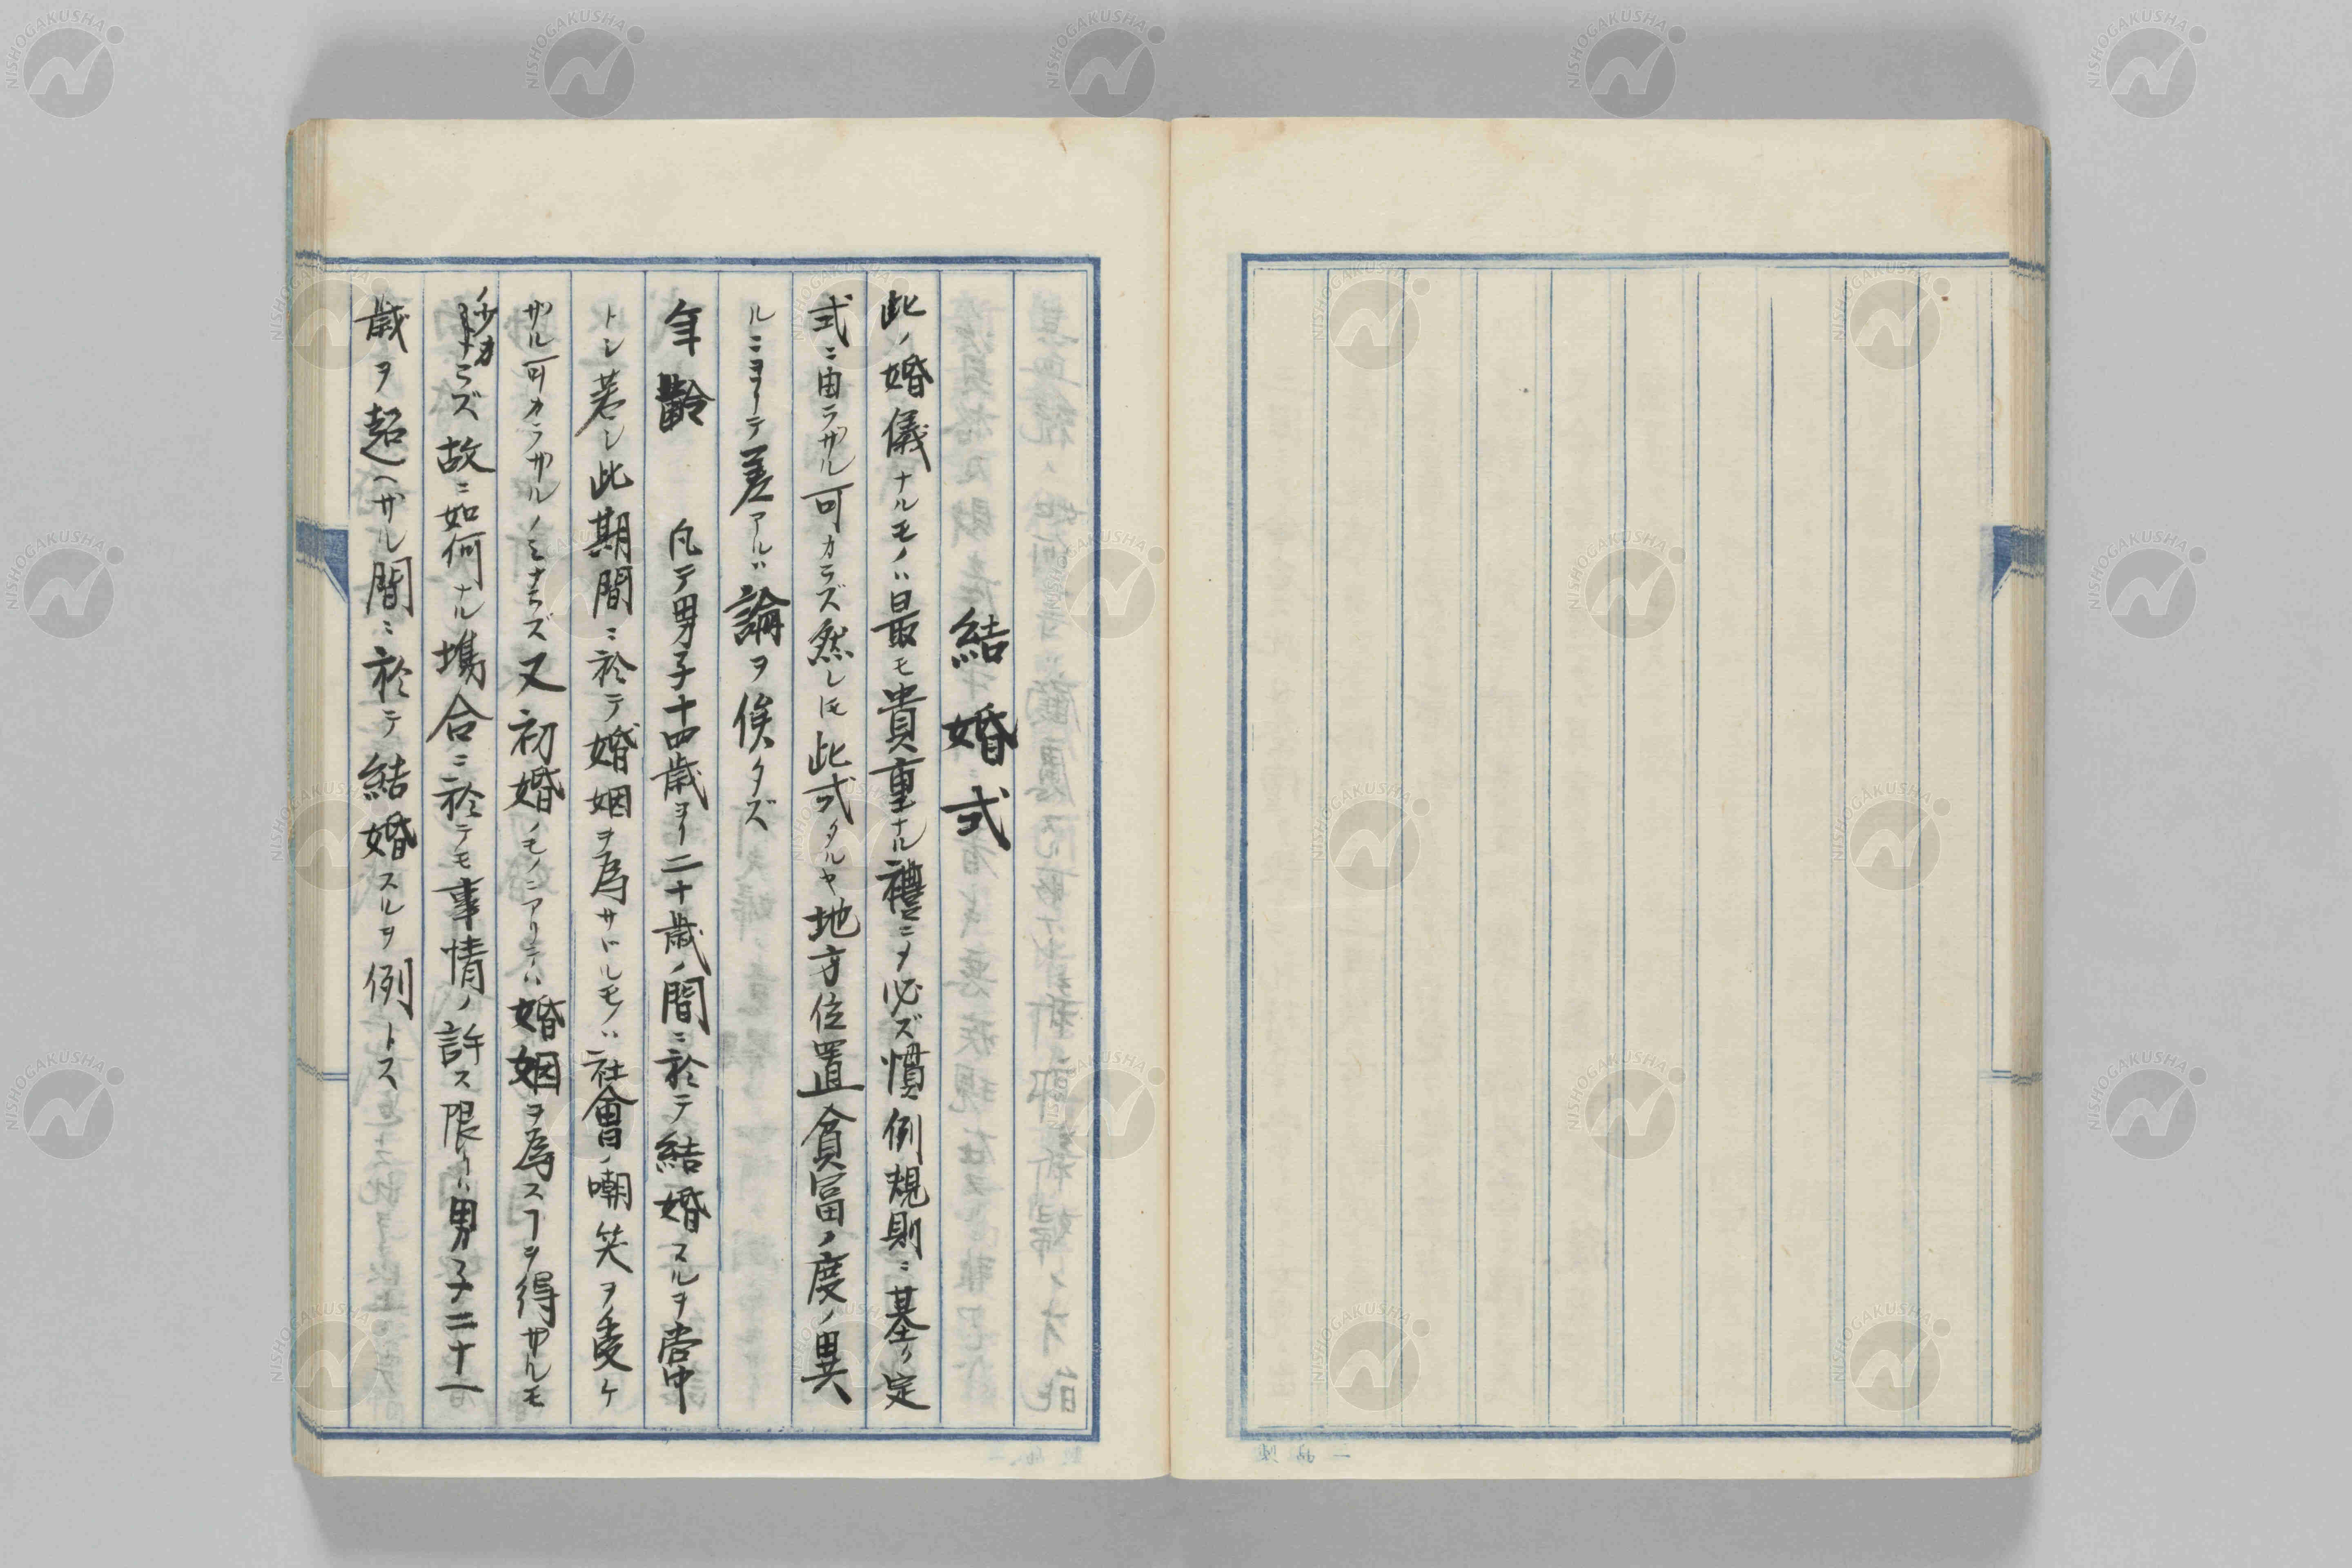 結婚式
此ノ婚儀ナルモノハ最モ貴重ナル禮ニヲ必ズ慣例規則ニ基ツ定
式ニ由ラザル可カラズ然レ𪜈此式タルヤ地方位置貧富ノ度ノ異
ルニヨリテ差アルハ論ヲ俟タズ
年齢 凡テ男子十四歳ヨリ二十歳ノ間ニ於テ結婚スルヲ常
トシ若シ此期間ニ於テ婚姻ヲ為サヾルモノハ社會ノ嘲笑ヲ受ケ
ザル可カラザルノミナラズ又初婚ノモノニアリテハ婚姻ヲ為スヿヲ得ザルモ
少カラズ故ニ如何ナル塲合ニ於テモ事情ノ許ス限リハ男子二十一
歳ヲ超ヘザル間ニ於テ結婚スルヲ例トス
NISHOGAKUSHA